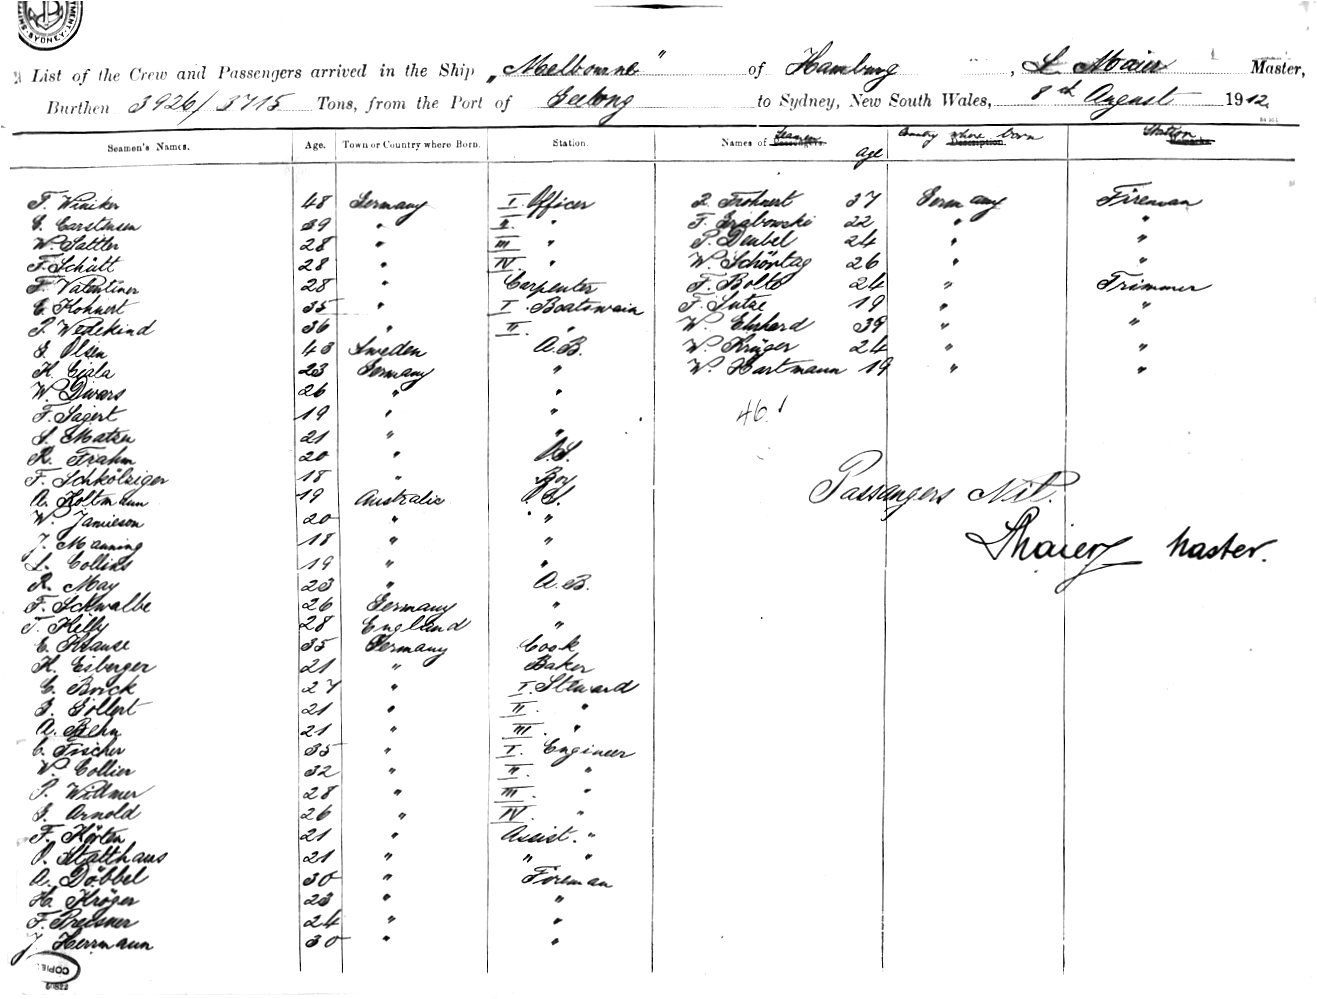 SYDNEY
List of the Crew and Passengers arrived in the Ship „Melbourne" of Hamburg, L. Maier Master,
Burthen 3926/3715 Tons, from the Port of Geelong to Sydney, New South Wales, 8th August 1912.
Seamen's Names. Age. Town or Country where Born. Station. Names of Passengers Seamen Age Description Country where born Remarks Station
F. Winiker 48 Germany I. Officer
C. Carstensen 39 " II. "
W. Sattler 28 " III "
F. Schütt 28 " IV. "
F. Valentiner 28 " Carpenter
E. Kohnert 35 " I. Boatswain
P. Wedekind 36 " II. "
G. Olsen 43 Sweden A.B.
H. Giala 23 Germany "
W. Divers 26 " "
F. Sagert 19 " "
S. Matzen 21 " "
R. Frahm 20 " O.S.
F. Schkölziger 18 " Boy
A. Holtmann 19 Australia O.S.
W. Jamieson 20 " "
J. Manning 18 " "
L. Collins 19 " "
R. May 23 " A.B.
F. Schwalbe 26 Germany "
T. Kelly 28 England "
E. Krause 35 Germany Cook
H. Eisberger 21 " Baker
C. Brick 27 " I. Steward
G. Gollert 21 " II. "
A. Behn 21 " III. "
C. Fischer 35 " I. Engineer
W. Collier 32 " II. "
P. Willmer 28 " III. "
G. Arnold 26 " IV. "
F. Körten 21 " Assist. "
O. Matthaus 21 " " "
A. Döbbel 30 " Fireman
H. Kröger 23 " "
F. Preisner 24 " "
J. Herrmann 30 " "
COPIED
Frohnert 37 Germany Fireman
F. Grabowski 22 " "
P. Deubel 24 " "
W. Schöntag 26 " "
F. Bolte 24 " Trimmer
F. Lutze 19 " "
W. Ehrhard 39 " "
W. Krüger 24 " "
W. Hartmann 19 " "
46!
Passangers Nil.
L Maier Master.